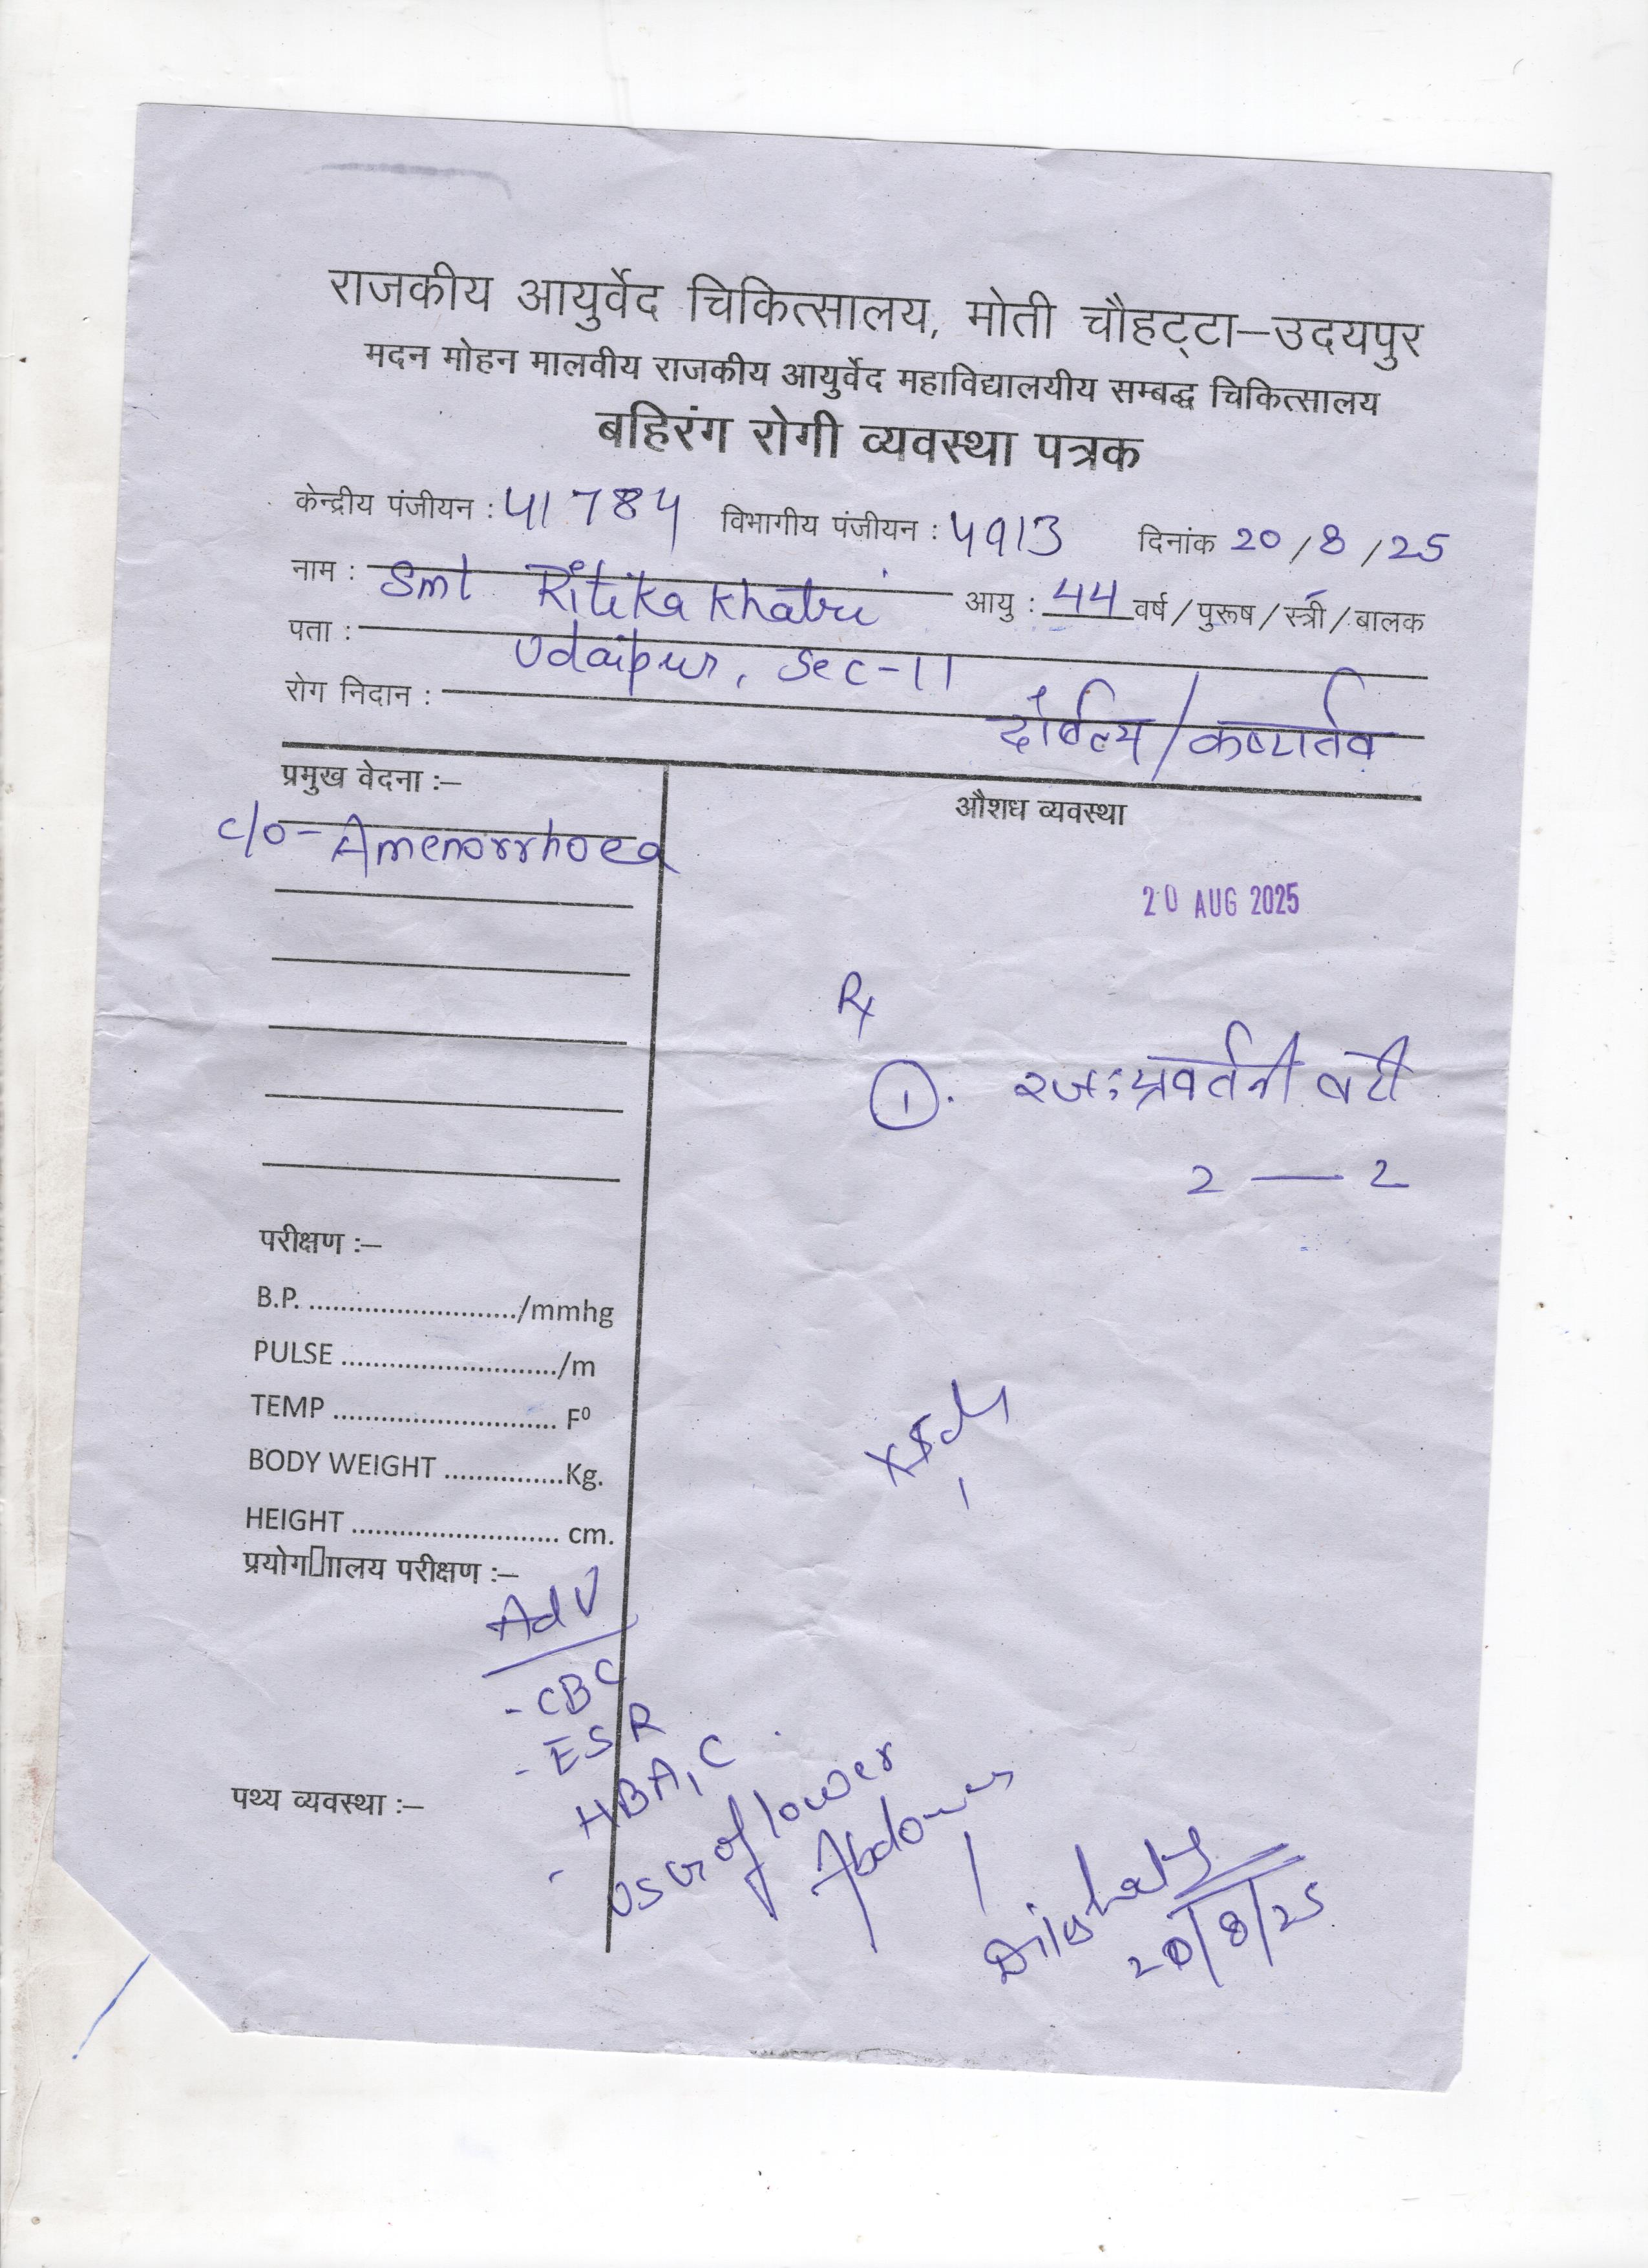 राजकीय आयुर्वेद चिकित्सालय, मोती चौहट्टा–उदयपुर
मदन मोहन मालवीय राजकीय आयुर्वेद महाविद्यालयीय सम्बद्ध चिकित्सालय
बहिरंग रोगी व्यवस्था पत्रक
केन्द्रीय पंजीयन : 41784 विभागीय पंजीयन : 4913 दिनांक 20/8/25
नाम : Smt Ritika Khatri आयु : 44 वर्ष/पुरूष/स्त्री/बालक
पता : Udaipur, Sec-11
रोग निदान : दौर्बल्य/कष्टार्तव
प्रमुख वेदना :–
औशध व्यवस्था
c/o- Amenorrhoea
20 AUG 2025
Rx
1. रजःप्रवर्तनी वटी
2 — 2
परीक्षण :–
B.P. ........................../mmhg
PULSE .........................../m
TEMP ............................ F⁰
BODY WEIGHT ...............Kg.
HEIGHT .......................... cm.
प्रयोग▯ाालय परीक्षण :–
Adv
- CBC
- ESR
- HBA1C
- USG of lower
Abdomen
पथ्य व्यवस्था :–
20/8/25